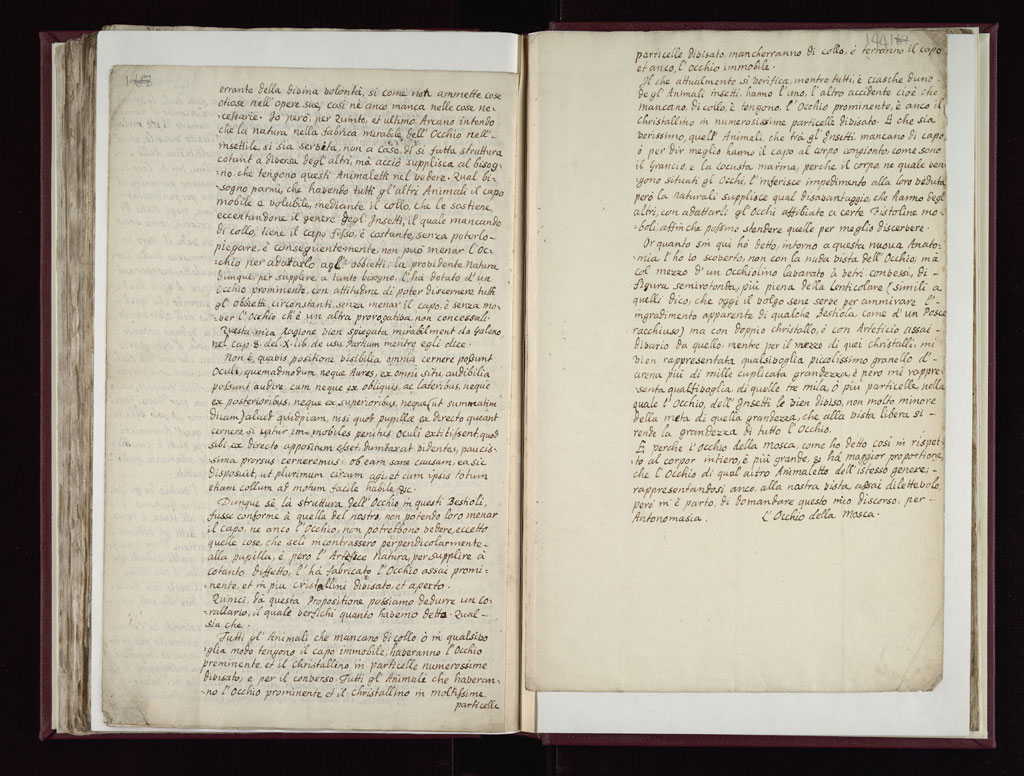 errante della divina volontà, si come non ammette cose
otiose nell'opere sue, così nè anco manca nelle cose ne-
cessarie. Io però, per Quinto, et ultimo Arcano intendo
che la natura nella fabrica mirabile dell'Occhio nell'-
insettile, si sia servita, non a caso, di si fatta struttura
cotant'a diversa degl'altri, mà acciò supplisca al bisog-
no, che tengono questi Animaletti nel vedere. Qual bi-
sogno parmi, che havendo tutti gl'altri Animali il capo
mobile e volubile, mediante il collo, che le sostiene,
eccentandone il genere degl'Insetti, il quale mancando
di collo, tiene il capo fisso, è costante, senza poterlo-
piegare, è conseguentemente, non può menar l'Oc-
chio per adatarlo agl'obbietti; la providente Natura
dunque, per supplire a tanto bisogno, l'hà dotato d'un
Occhio prominente, con attitudine di poter discernere tutti
gl'obbietti circonstanti, senza menar il capo, è senza mo-
ver l'Occhio ch'è un altra prorogativa, non concessali.
Questa mia Ragione vien spiegata mirabilment da Galeno
nel cap. 8. del X. lib. de usu Partium mentre egli dice.
Non è, quavis positione visibilia omnia cernere possunt
Oculi, quemadmodum neque Aures, ex omni situ, audibilia
possunt audire; cum neque ex obliquis, ac lateribus, neque
ex posterioribus, neque ex superioribus, neque (ut summatim
dicam) aliud quidpiam, nisi quod pupillæ ex directo queant
cernere; si igitur immobiles penitus Oculi extitissent, quod
sibi ex directo appositum esset dumtaxat videntes, paucis-
sima prorsus cerneremus. ob eam causam, ea sic
disposuit, ut plurimum circum agi, et cum ipsis totum
etiam collum ad motum facile habile &c.
Dunque sè la struttura dell'Occhio in questi Bestioli,
fusse conforme à quella del nostro, non potendo loro menar
il capo, ne anco l'Occhio, non potrebbono vedere, eccetto
quelle cose, che seli incontrassero perpendicolarmente-
alla pupilla, è però l'Artefice Natura, per supplire à
cotanto diffetto, l'hà fabricato l'Occhio assai promi-
nente, et in piu cristallini divisato, et aperto.
Quinci, dà questa Propositione possiamo dedurre un Co-
rallario, il quale verfichi quanto havemo detto. Qual-
sia che.
Tutti gl'Animali che mancano di collo ò in qualsivo
glia modo tengono il capo immobile, haveranno l'Occhio
preminente, et il christallino, in particelle numerossime
divisato, e per il converso Tutti gl'Animale che haveran-
no l'Occhio prominente et il christallino in moltissime
particelle
particelle divisato, mancherranno di collo, è terranno il capo
et anco, l'Occhio immobile.
Il che attualmente si verifica, mentre tutti, è ciasche duno
degl'Animali insetti, hanno l'uno, l'altro accidente cioè che
mancano, di collo, è tengono, l'Occhio prominente, è anco il
christallino in numerosissime particelle divisato. E che sia
verissimo, quell'Animali, che trà gl'Insetti, mancano di capo,
ò per dir meglio hanno il capo al corpo congionto, come sono
il Grancio e la locusta marina, perche il corpo, ne quale ven
gono situati gl'Occhi, l'inferisce impedimento alla loro veduta
però la naturali supplisce qual disavantaggio, che hanno degl
altri, con adattarli gl'Occhi affibiate a certe Fistoline mo-
boli, affinche possino stendere quelle per meglio discervere.
Or quanto sin qui hò detto, intorno a questa nuova Anato-
mia l'ho io scoverto, non con la nuda vista dell'Occhio, mà
col mezzo d'un Occhiolino lavarato à vetri convessi, di-
figura semirotonda, più piena della lenticolare (simili a
quelli dico, che oggi il volgo sene serve per ammirare l'-
ingradimento apparente di qualche Bestiola, come d'un
racchiuso) ma con doppio christallo, è con Artefício assai-
divario da quello, mentre per il mezzo di quei christalli, mi
vien rappresentata qualsivoglia picolissimo granello d'-
arena più di mille cuplicata grandezza, è però mi rappre-
senta qualsivoglia, di quelle tre mila, ò più particelle, nella
quale l'Occhio, dell'Insetti le vien diviso, non molto minore
della metà di quella grandezza, che alla vista libera si-
rende la grandezza di tutto l'Occhio.
E perche l'Occhio della Mosca, come ho detto così in rispet-
to al corpor intiero, è più grande, & hà maggior proportione,
che l'Occhio di qual altro Animaletto dell'istesso genere;-
rappresentandosi anco, alla nostra vista assai dilettevole
però m'è parto, di domandare questo mio discorso, per-
Antonomasia. L'Occhio della Mosca.